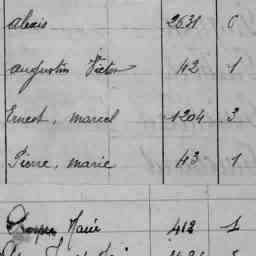 alexis 2631 6
augustin Victor 42 1
Ernest, marcel 1204 3
Pierre, marie 43 1
Marie 412 1